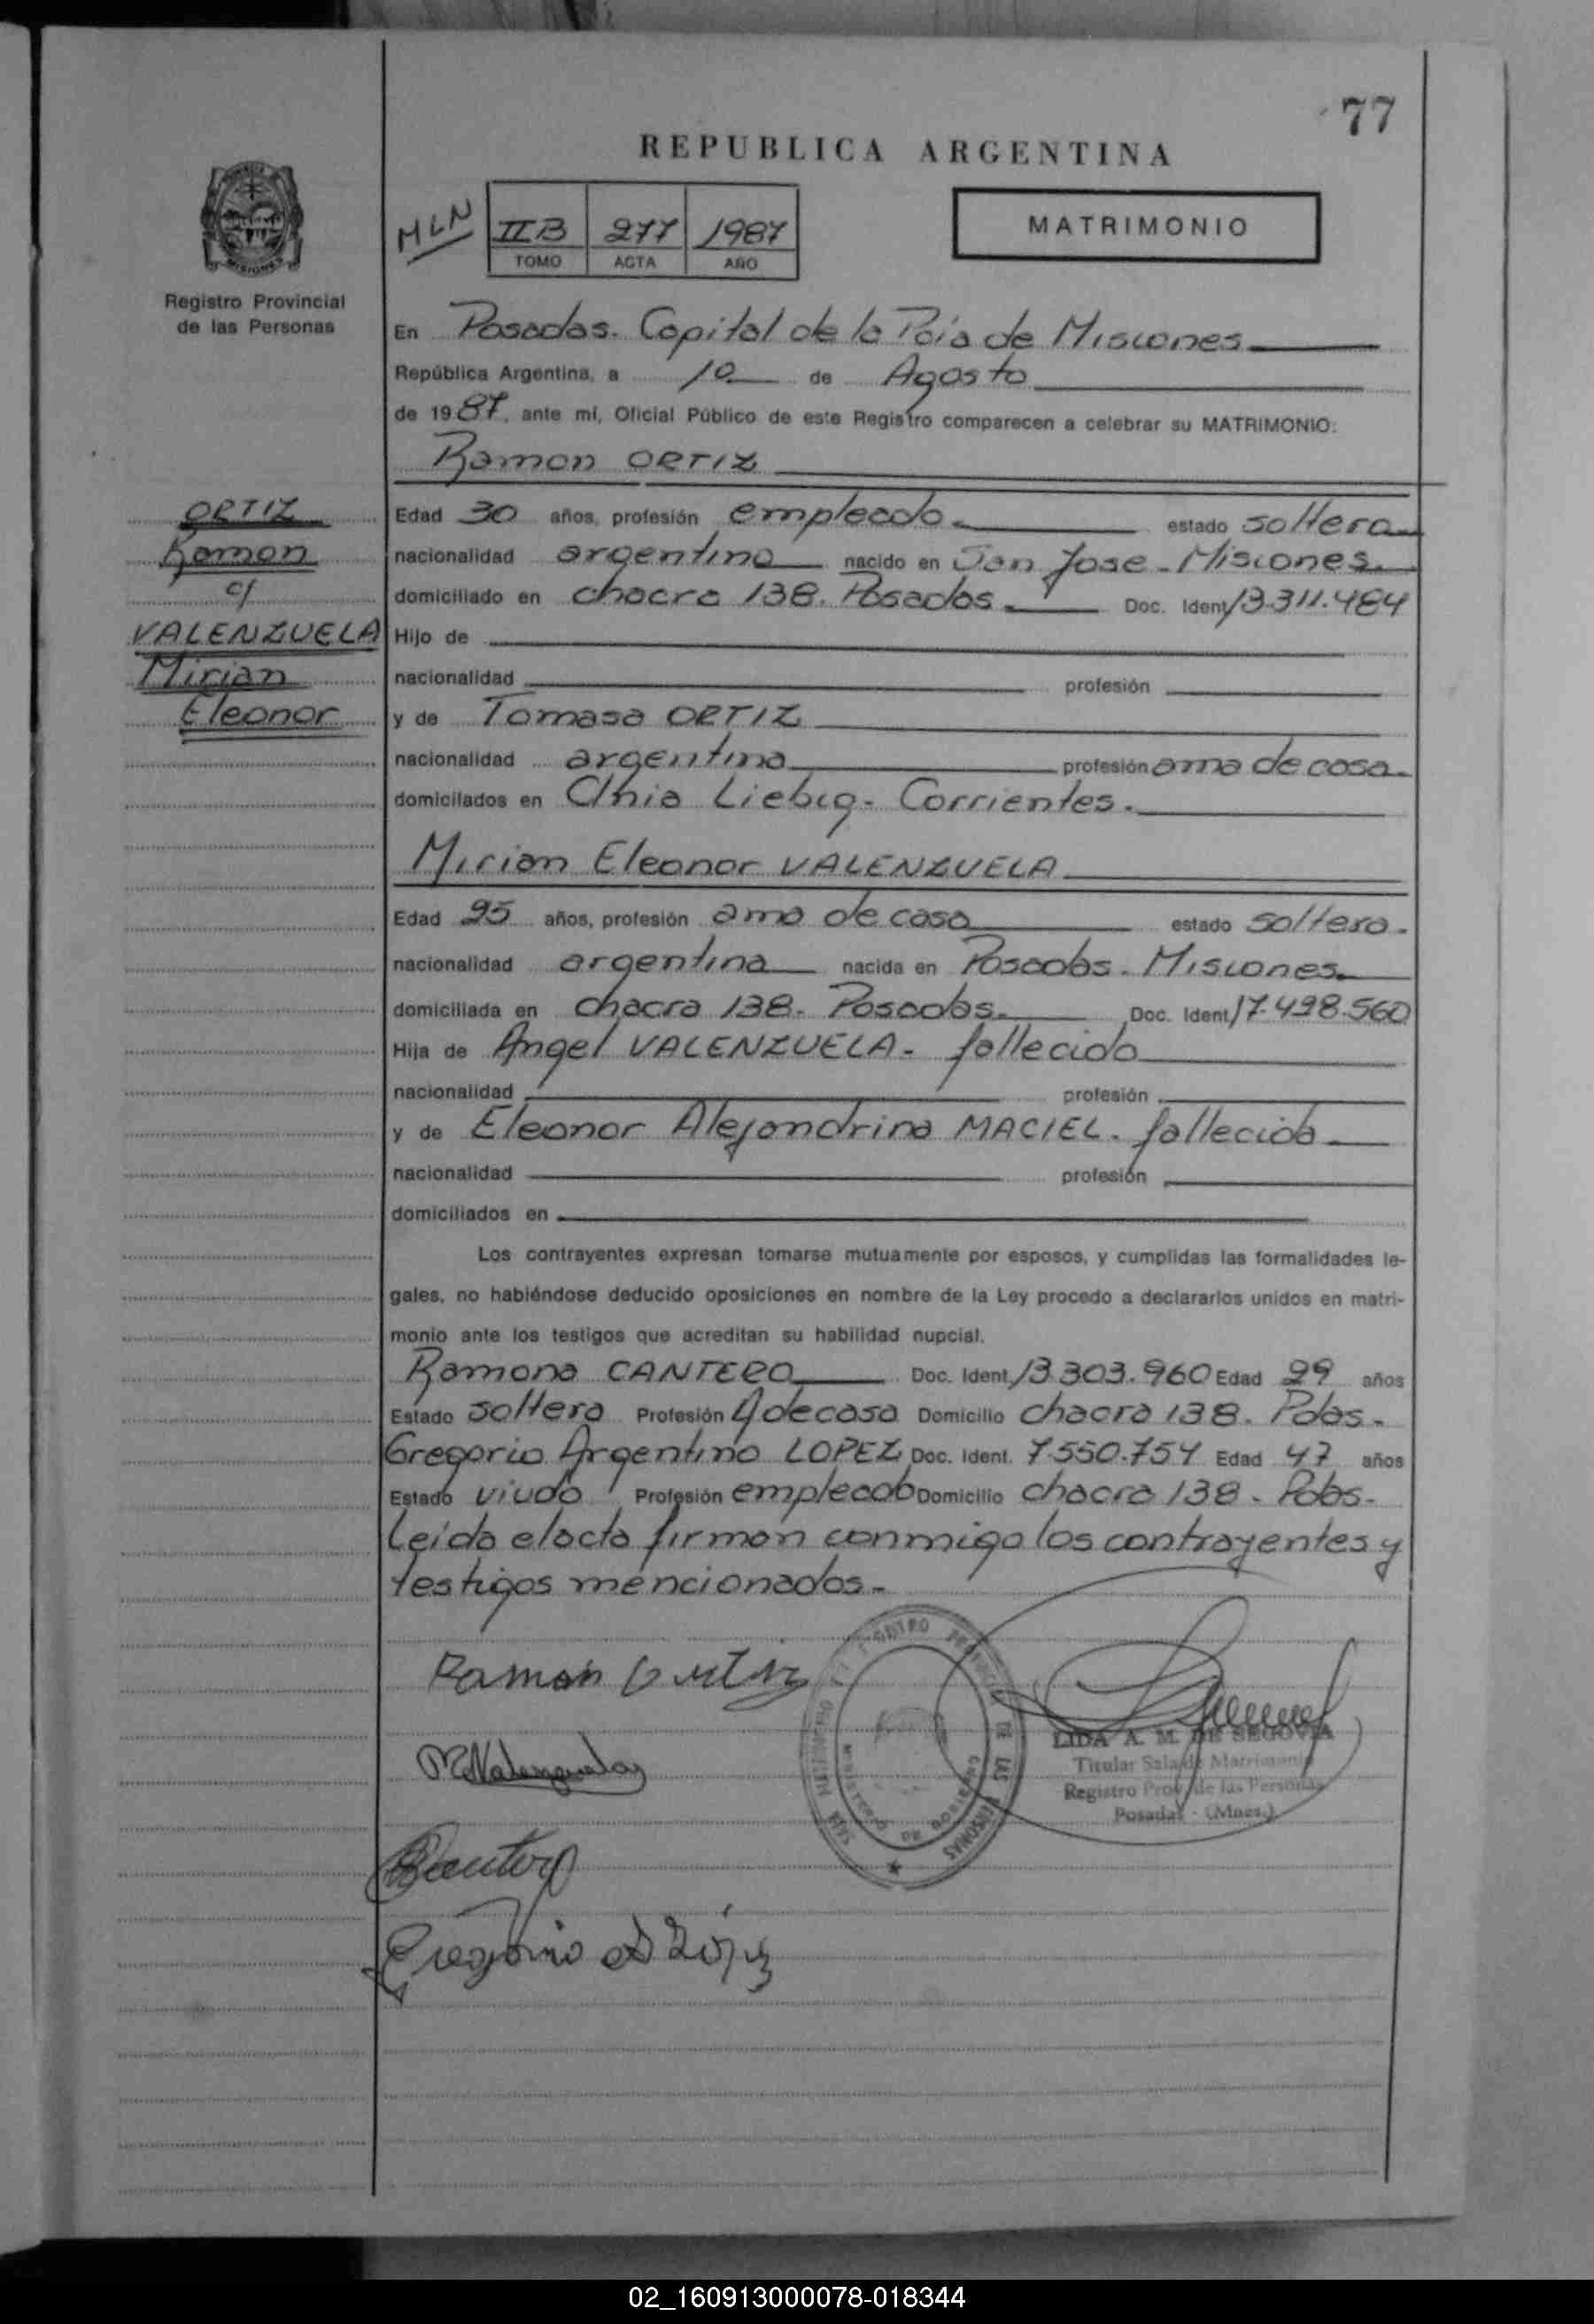 77
REPUBLICA ARGENTINA
MLN
IIB 277 1987
TOMO ACTA AÑO
MATRIMONIO
Registro Provincial
de las Personas
En Posadas. Capital de la Pcia de Misiones
República Argentina, a 10 de Agosto
de 1987, ante mí, Oficial Público de este Registro comparecen a celebrar su MATRIMONIO:
Ramon ORTIZ
ORTIZ
Ramon
c/
VALENZUELA
Mirian
Eleonor
Edad 30 años, profesión empleado. estado soltero
nacionalidad argentino nacido en San Jose - Misiones.
domiciliado en chacra 138. Posadas. Doc. Ident 13.311.484
Hijo de
nacionalidad profesión
y de Tomasa ORTIZ
nacionalidad argentina profesión ama de casa.
domiciliados en Clnia Liebig - Corrientes.
Mirian Eleonor VALENZUELA
Edad 25 años, profesión ama de casa estado soltera.
nacionalidad argentina nacida en Posadas. Misiones.
domiciliada en chacra 138. Posadas. Doc. Ident 17.498.560
Hija de Angel VALENZUELA - fallecido
nacionalidad profesión
y de Eleonor Alejandrina MACIEL. fallecida
nacionalidad profesión
domiciliados en
Los contrayentes expresan tomarse mutuamente por esposos, y cumplidas las formalidades le-
gales, no habiéndose deducido oposiciones en nombre de la Ley procedo a declararlos unidos en matri-
monio ante los testigos que acreditan su habilidad nupcial.
Ramona CANTERO Doc. Ident 13.303.960 Edad 29 años
Estado soltera Profesión A de casa Domicilio chacra 138. Pdas.
Gregorio Argentino LOPEZ Doc. Ident. 7.550.754 Edad 47 años
Estado viudo Profesión empleado Domicilio chacra 138. Pdas.
Leida el acta firman conmigo los contrayentes y
testigos mencionados.
Ramon Ortiz
MEValenzuela
LIDA A. M. DE SEGOVIA
Titular Sala de Matrimonio
Registro Prov. de las Personas
Posadas - (Mnes.)
REGISTRO PROVINCIAL DE LAS PERSONAS
MINISTERIO DE GOBIERNO
RCantero
Gregorio A López
02_160913000078-018344